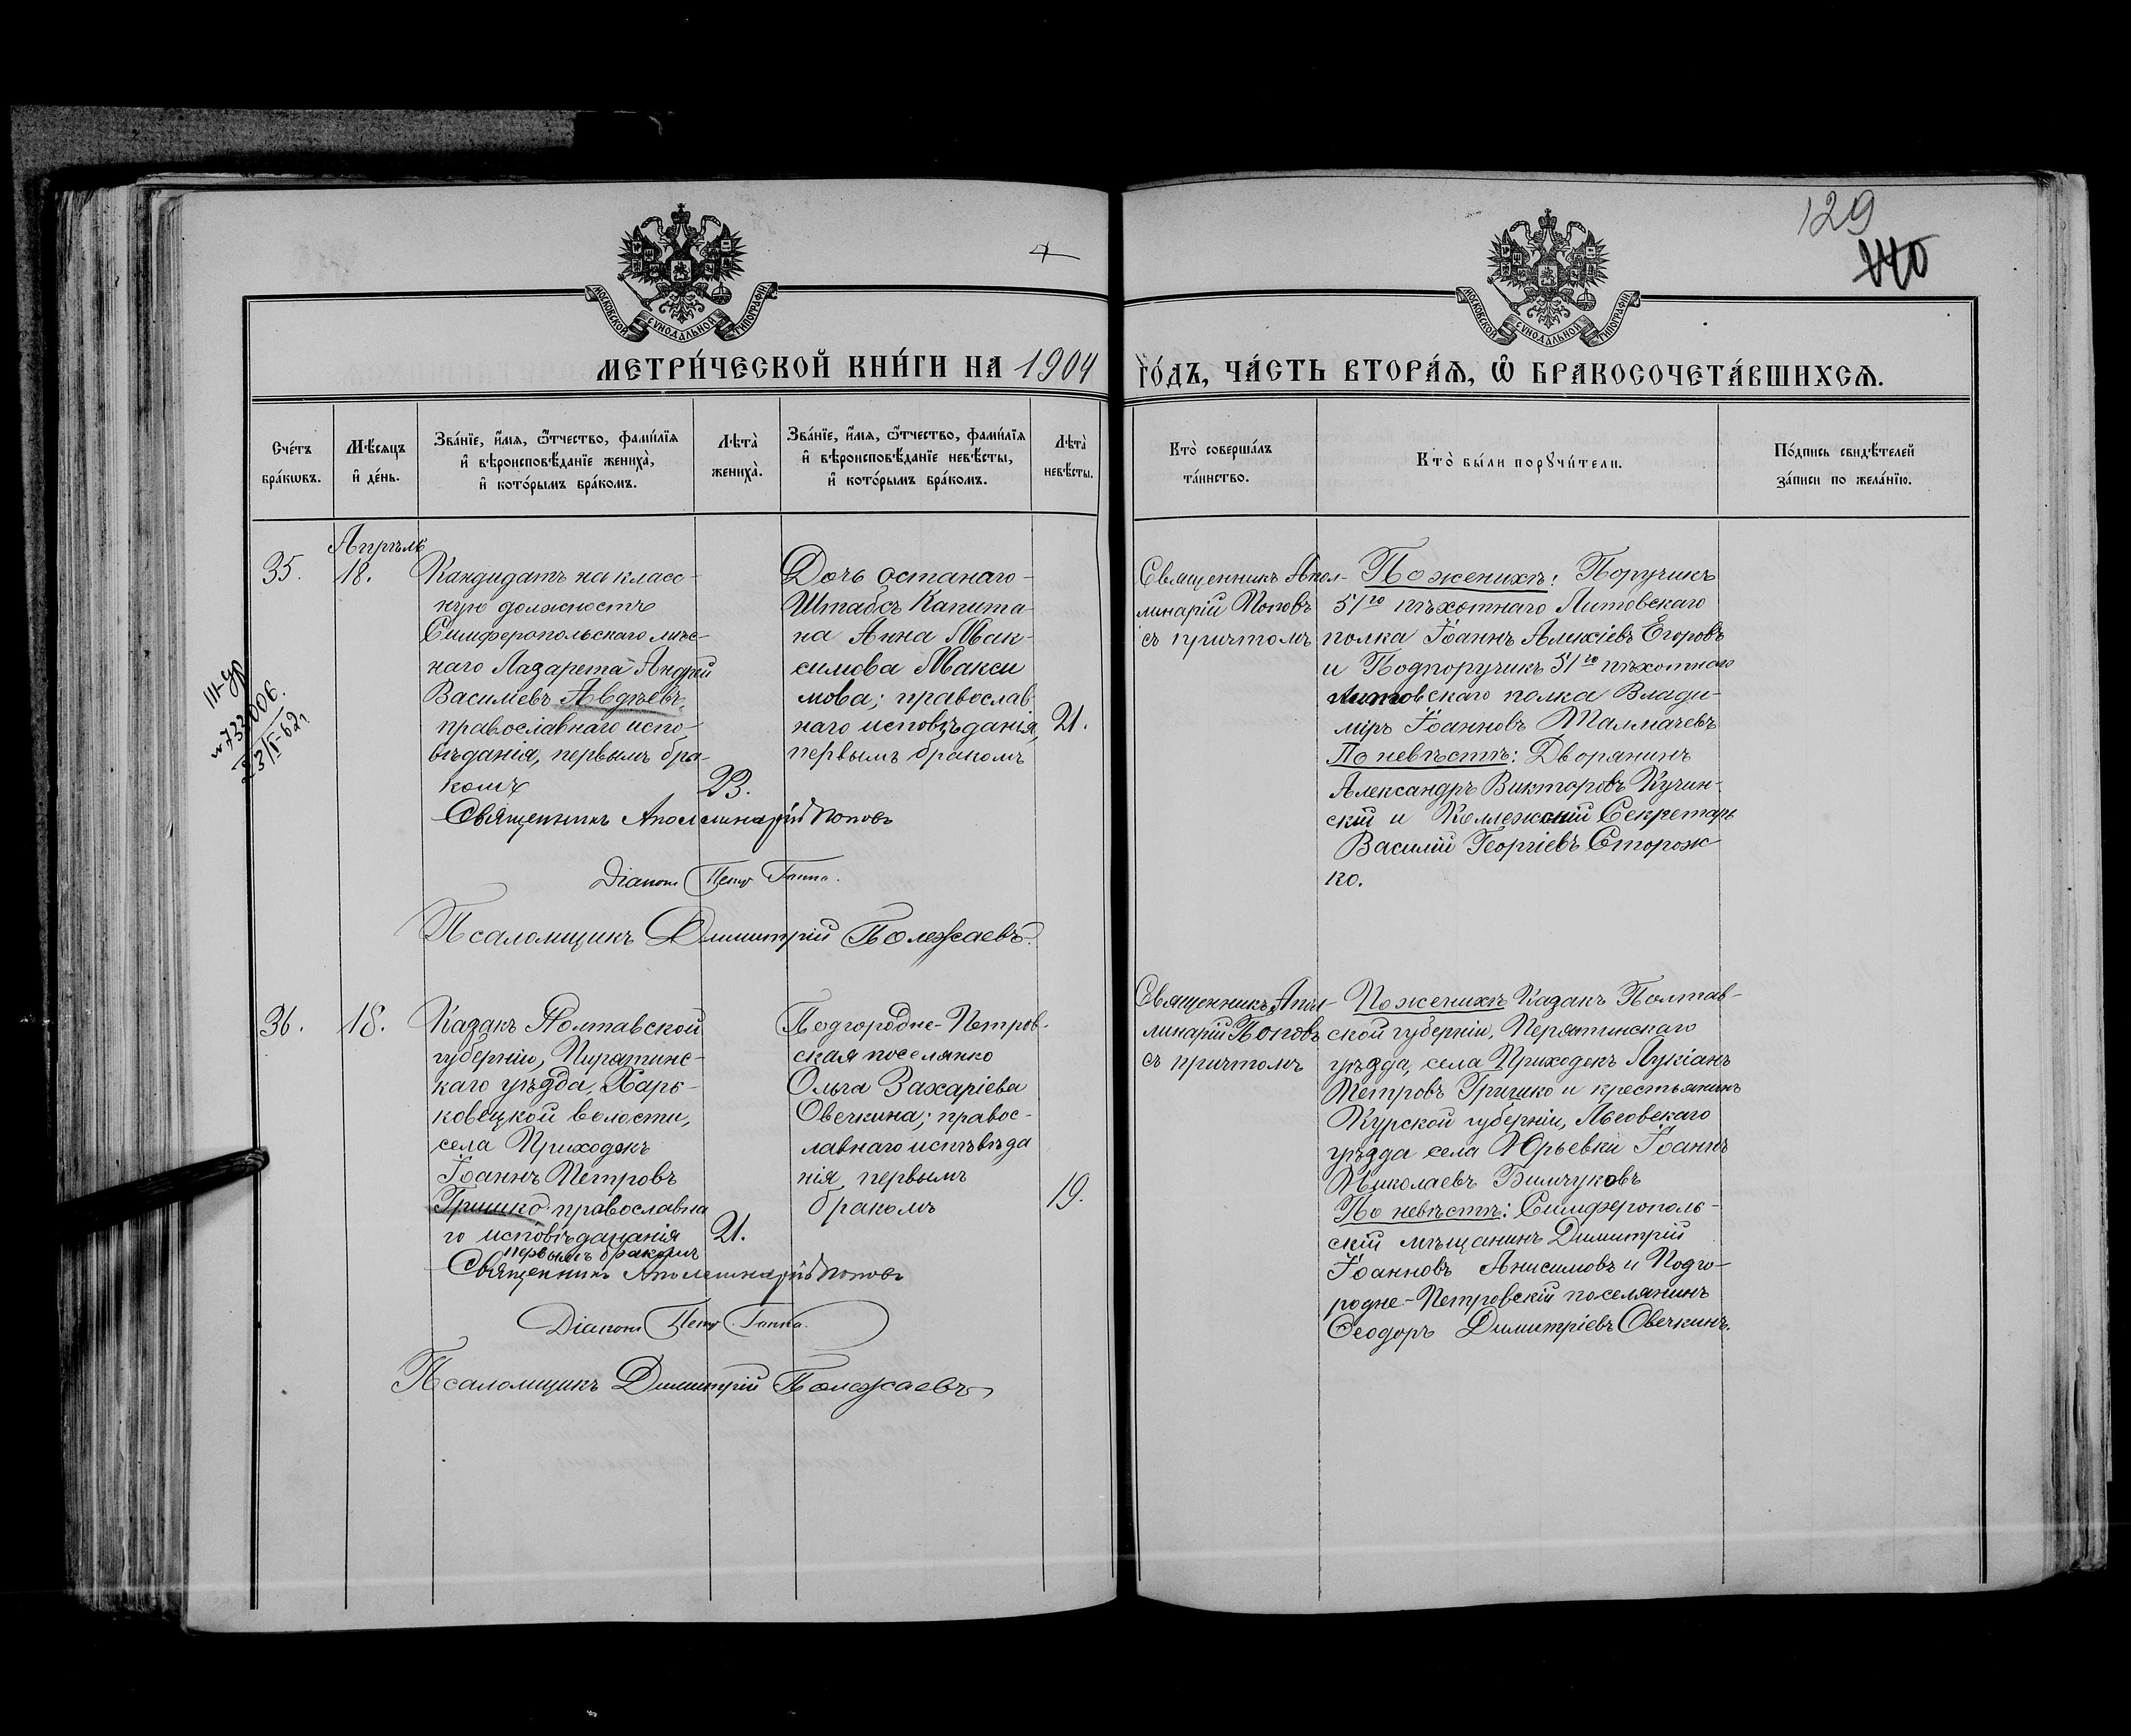 129
140
МОСКОВСКОЙ СѴНОДАЛЬНОЙ ТИПОГРАФІИ
МОСКОВСКОЙ СѴНОДАЛЬНОЙ ТИПОГРАФІИ
МЕТРИ́ЧЕСКОЙ КНИ́ГИ НА 1904
ГО́ДЪ, ЧА́СТЬ ВТОРА́Ѧ, Ѽ БРАКОСОЧЕТА́ВШИХСѦ.
Сче́тъ
бра́кѡвъ.
Мѣ́сѧцъ
и҆ де́нь.
Зва́нїе, и҆́мѧ, ѻ҆́тчество, фами́лїѧ
и҆ вѣроисповѣ́данїе жениха̀,
и҆ кото́рымъ бра́комъ.
Лѣта̀
жениха̀.
Зва́нїе, и҆́мѧ, ѻ҆́тчество, фами́лїѧ
и҆ вѣроисповѣ́данїе невѣ́сты,
и҆ кото́рымъ бра́комъ.
Лѣта̀
невѣ́сты.
Кто̀ соверша́лъ
та́инство.
Кто̀ бы́ли порꙋчи́тели.
По́дпись свидѣ́телей
за́писи по жела́нїю.
35.
Апрѣль
18.
Кандидатъ на класс-
ную должность
Симферопольскаго мѣс-
наго Лазарета Андрей
Васильевъ Авдѣевъ,
православнаго испо-
вѣданія, первымъ бра-
комъ
23.
Дочь останаго
Штабсъ Капита-
на Анна Мак-
симова Макси
мова; православ
наго исповѣданія,
первымъ бракомъ
21.
Священникъ Апол-
линарій Поповъ
съ причтомъ
По женихѣ: Поручикъ
51го пѣхотнаго Литовскаго
полка Іоаннъ Алексіевъ Егоровъ
и Подпоручикъ 51го пѣхотнаго
Литовскаго полка Влади-
міръ Іоанновъ Талмачевъ
По невѣстѣ: Дворянинъ
Александръ Викторовъ Кучин-
скій и Коллежскій Секретарь
Василій Георгіевъ Сторож
ко.
Священникъ Аполлинарій Поповъ
Діаконъ Петръ Гаппа.
Псаломщикъ Димитрій Полежаевъ
III-ЯР
№ 733006.
23/I-62г
36.
18.
Казакъ Полтавской
губерніи, Пирятинс-
каго уѣзда, Харь-
ковецкой волости,
села Приходокъ
Іоаннъ Петровъ
Гришко православна
го исповѣданія
первымъ бракомъ
21.
Подгородне-Петров-
ская поселянко
Ольга Захаріева
Овечкина; правос-
лавнаго исповѣда
нія, первымъ
бракомъ
19.
Священникъ Апол-
линарій Поповъ
съ причтомъ
По женихѣ Казакъ Полтав-
ской губерніи, Перятинскаго
уѣзда, села Приходокъ Лукіанъ
Петровъ Гришко и крестьянинъ
Курской губерніи, Льговскаго
уѣзда села Юрьевки Іоаннъ
Николаевъ Бимчуковъ
По невѣстѣ: Симферополь-
скій мѣщанинъ Димитрій
Іоанновъ Анисимовъ и Подго-
родне-Петровскій поселянинъ
Ѳеодоръ Димитріевъ Овечкинъ.
Священникъ Аполлинарій Поповъ
Діаконъ Петръ Гаппа.
Псаломщикъ Димитрій Полежаевъ